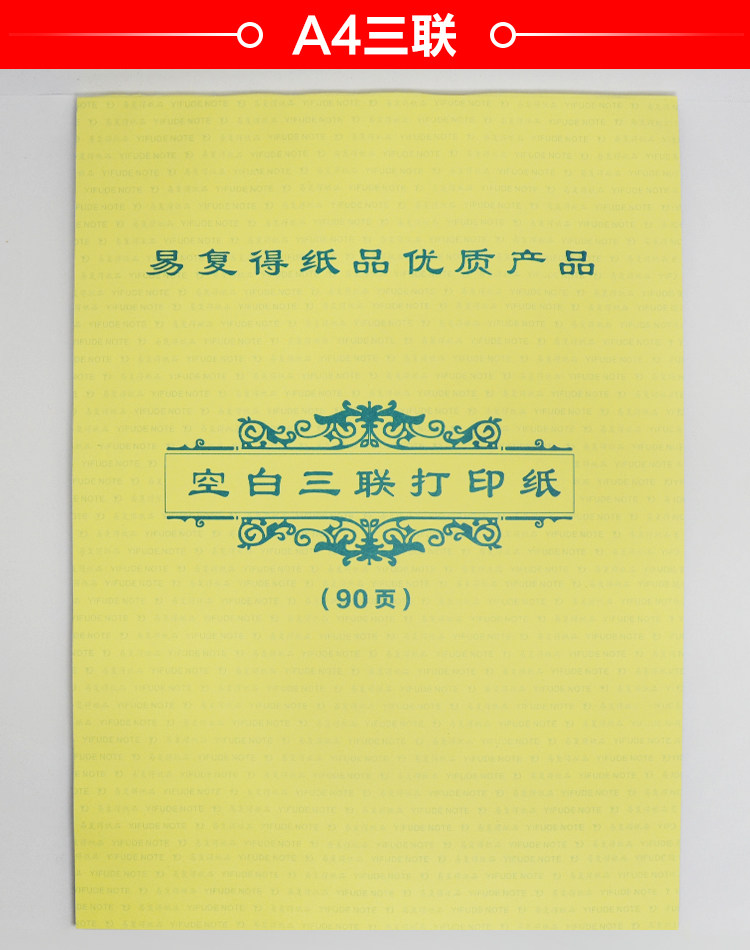 A4三联
易复得纸品优质产品
空白三联打印纸
(90页)